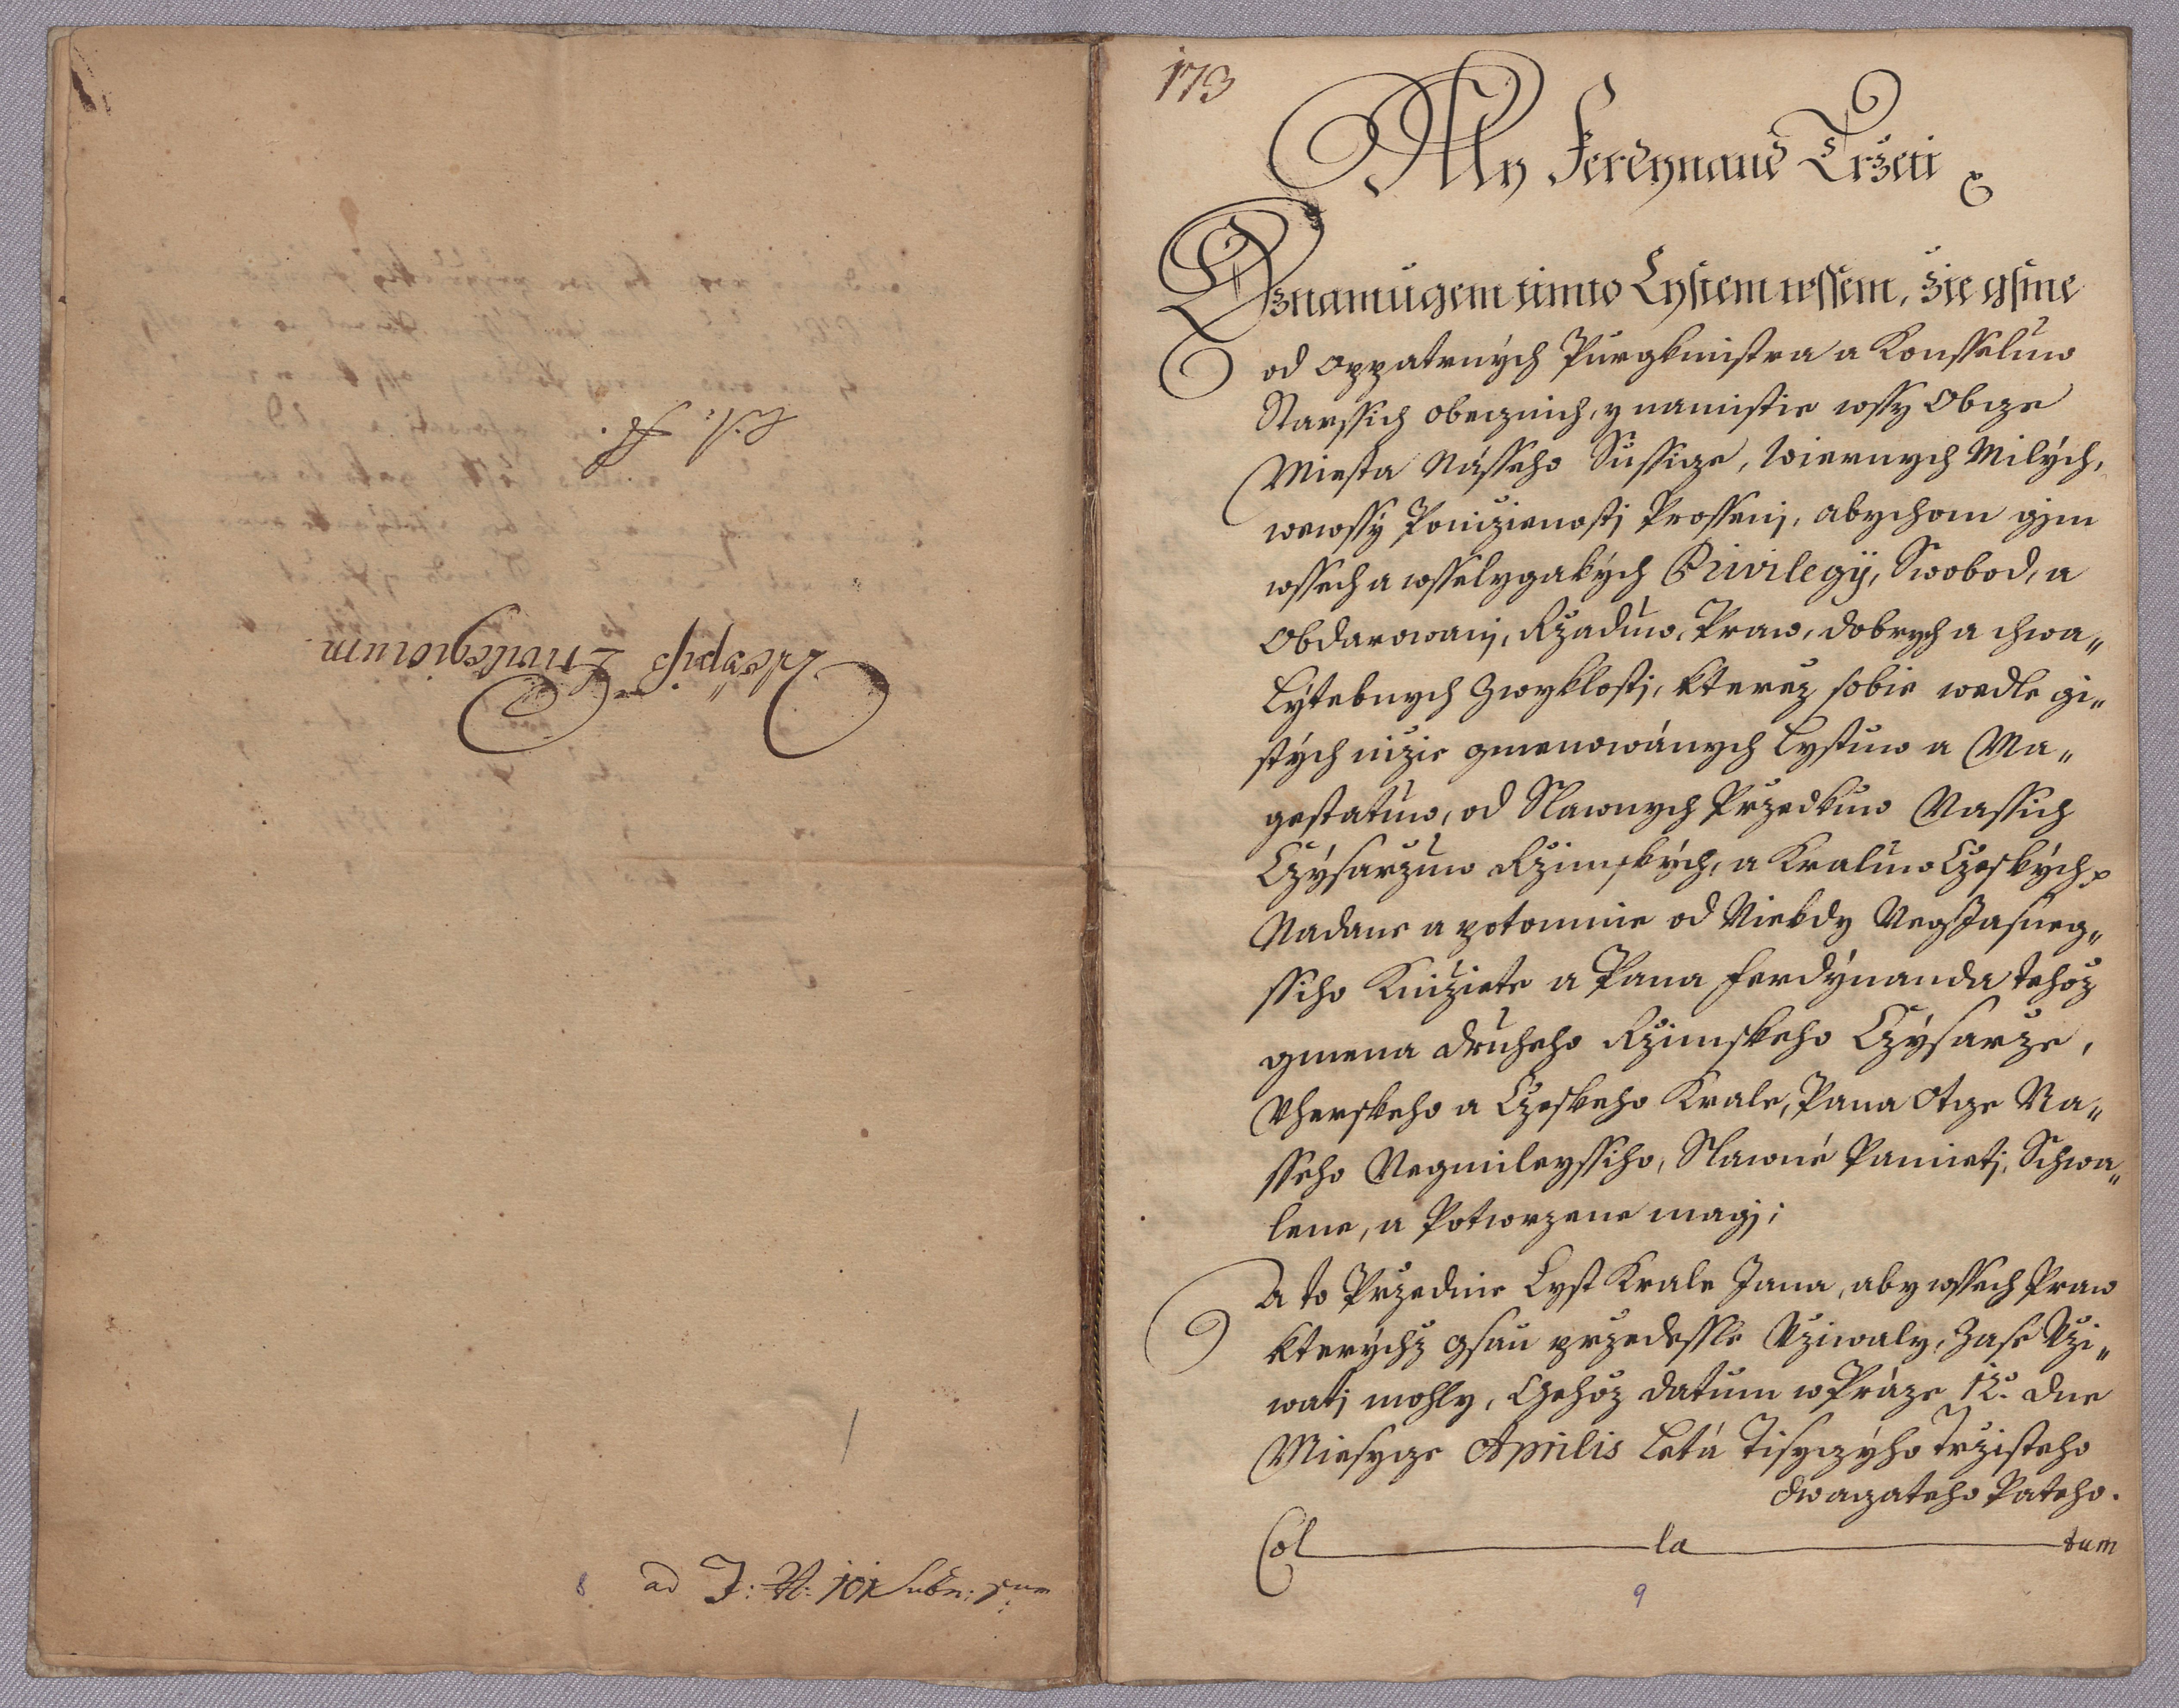 Weypiß Privilegiorum
8 ad J: N: 101 Subn:
173
My Ferdynand Trzeti
Oznamugem timto Lystem wssem, zie gsme
od Oppatrných Purgkmistra a Konsseluw
Starssich obecznich, y namistie wssy Obcze
Miesta Násseho Sussicze, Wiernych Milých,
wewssý Ponizienosti Prosseni, abychom gim
wssech a wsselygakých Privilegÿ, Swobod, a
Obdarowani, Rzaduw, Praw, dobrych a chwa„
lytebnych Zwyklosti, kterez sobie wedle gi„
stých nizie gmenowáných Lystuw a Ma„
gestatuw, od Slawnych Przedkuw Nassich
Czýsarzuw Rzimských, a Kraluw Czeských
Nadane a potomnie od Niekdy NegJasneg„
ssiho Knizete a Pana Ferdýnanda tehoz
gmena druheho Rzimskeho Czýsarze,
Vherskeho a Czeskeho Krale, Pana Otcze Na„
sseho Negmileyssiho, Slawné Pamieti, Schwa„
lene, a Potwrzene magi;
A to Przednie Lyst Krale Jana, aby wssech Praw
kterýchz gsau przedessle Vziwaly, Zase Vzi„
wati mohly, Gehoz datum w Práze 12. dne
Miesycze Aprilis Letá Tisyczýho Trzisteho
dwaczateho Pateho.
Col la tum
9